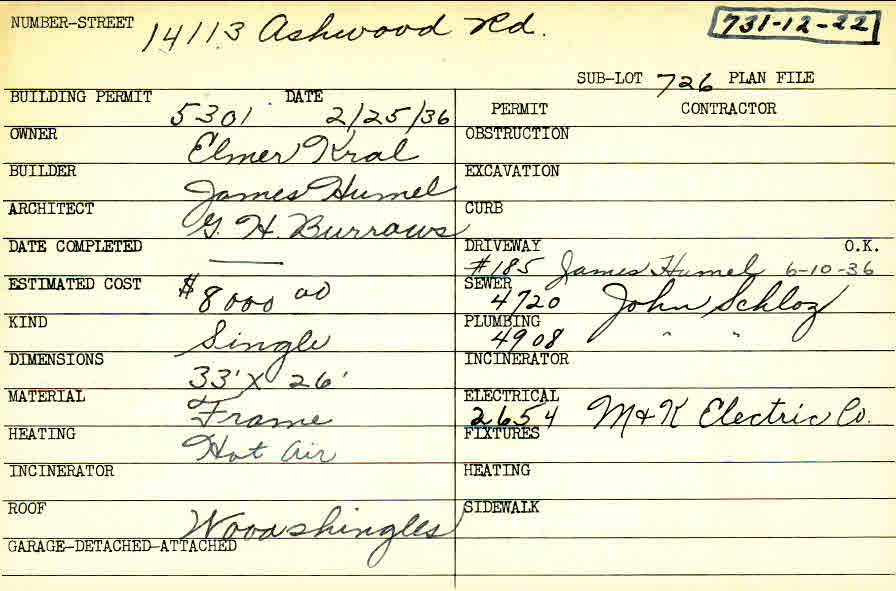 NUMBER-STREET 14113 Ashwood Rd. 731-12-22
SUB-LOT 726 PLAN FILE
BUILDING PERMIT 5301 DATE 2/25/36
PERMIT CONTRACTOR
OWNER Elmer Kral
OBSTRUCTION
BUILDER James Humel
EXCAVATION
ARCHITECT G. H. Burrows
CURB
DATE COMPLETED —
DRIVEWAY O.K.
#185 James Humel 6-10-36
ESTIMATED COST $8000 00
SEWER 4720 John Schloz
KIND Single
PLUMBING 4908 " "
DIMENSIONS 33' X 26'
INCINERATOR
MATERIAL Frame
ELECTRICAL 2654 M&K Electric Co.
HEATING Hot Air
FIXTURES
INCINERATOR
HEATING
ROOF Wood shingles
SIDEWALK
GARAGE-DETACHED-ATTACHED